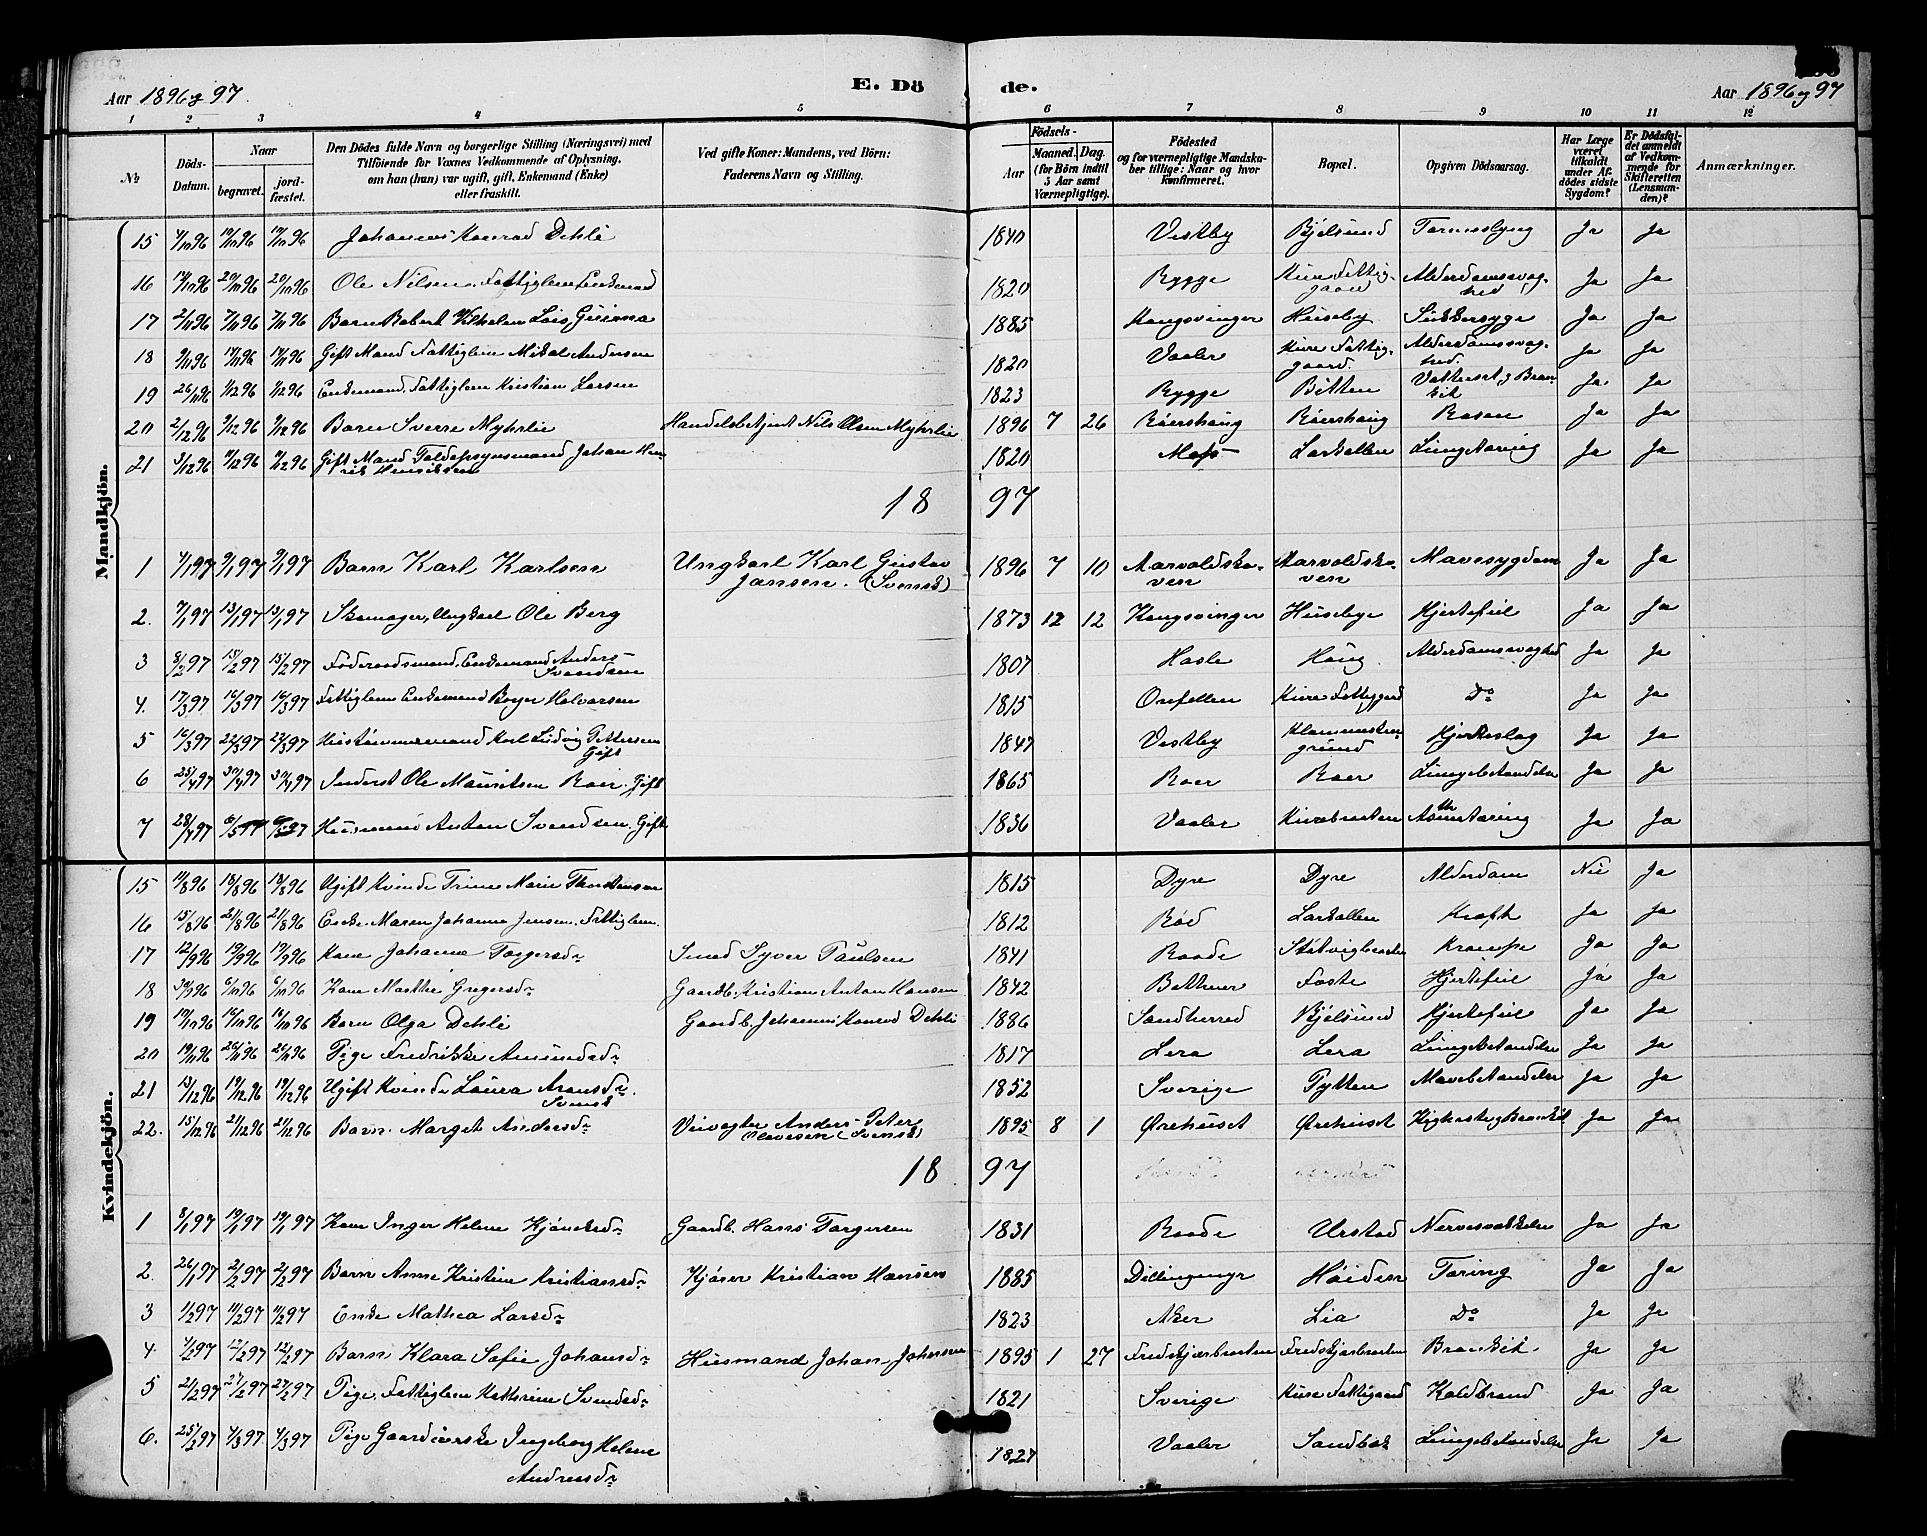 Aar 1896 og 97.
E. Dö
de.
Aar 1896 og 97
1 2 3 4 5 6 7 8 9 10 11 12
No
Döds-Datum.
Naar
begravet.
jord-fæstet.
Den Dödes fulde Navn og borgerlige Stilling (Næringsvei) med
Tilföiende for Voxnes Vedkommende af Oplysning,
om han (hun) var ugift, gift, Enkemand (Enke)
eller fraskilt.
Ved gifte Koner: Mandens, ved Börn:
Faderens Navn og Stilling.
Födsels-
Aar
Maaned. Dag.
(for Börn indtil
5 Aar samt
Værnepligtige).
Födested
og for værnepligtige Mandska-
ber tillige: Naar og hvor
konfirmeret.
Bopæl.
Opgiven Dödsaarsag.
Har Læge
været
tilkaldt
under Af-
dödes sidste
Sygdom?
Er Dödsfal-
det anmeldt
af Vedkom-
mende for
Skifteretten
(Lensman-
den)?
Anmærkninger.
Mandkjön.
15 4/10 96 10/10 96 10/10 96 Johannes Konrad Dehli 1840 Vestby Bjølsund Ja Ja
16 14/10 96 20/10 96 20/10 96 Ole Nilsen, Fattiglem Enkemand 1820 Rygge Kure Fattiggaard Alderdomssvaghed Ja Ja
17 2/11 96 7/11 96 7/11 96 Barn Robert Vilhelm Lois 1885 Kongsvinger Huseby Sukkersyge Ja Ja
18 9/11 96 14/11 96 14/11 96 Gift Mand Fattiglem Mikal Andersen 1820 Vaaler Kure Fattiggaard. Alderdomssvaghed. Ja Ja
19 26/11 96 1/12 96 1/12 96 Enkemand, Fattiglem Kristian Larsen 1823 Rygge Botten Vattersot, Bronkit Ja Ja
20 2/12 96 9/12 96 9/12 96 Barn Sverre Myhrlie Handelsbetjent Nils Olsen Myhrlie 1896 7 26 Röiershaug Röiershaug Rosen Ja Ja
21 3/12 96 7/12 96 7/12 96 Gift Mand Toldopsynsmand Johan Henrik Henriksen 1820 Moss Larkollen Lungetæring Ja Ja
18 97
1 4/1 97 9/1 97 9/1 97 Barn Karl Karlsen Ungkarl Karl Gustav Jansen. (Svensk) 1896 7 10 Aarvoldskoven Aarvoldskoven Mavesygdom Ja Ja
2. 7/1 97 13/1 97 13/1 97 Skomager, Ungkarl Ole Berg 1873 12 12 Kongsvinger Husebye Hjertefeil Ja Ja
3 8/2 97 15/2 97 15/2 97 Föderaadsmand, Enkemand Anders Svendsen 1807 Hasle Haug Alderdomssvaghed Ja Ja
4. 17/3 97 16/3 97 16/3 97 Fattiglem Enkemand Borger Halvorsen 1815 Kure Fattiggaard Do Ja Ja
5 16/3 97 22/3 97 22/3 97 Hustömmermand Karl Ludvig Pettersen Gift 1847 Vestby Klommestengrund Hjerteslag Ja Ja
6 25/4 97 30/4 97 30/4 97 Inderst Ole Mauritsen Roer. Gift 1865 Roer Roer Lungebetændelse Ja Ja
7 28/4 97 6/5 97 6/5 97 Husmand Anton Svendsen. Gift 1836 Vaaler Kurebraaten Ja Ja
Kvindekjön.
15 11/8 96 18/8 96 18/8 96 Ugift Kvinde Trine Marie Thorstensen 1815 Dyre Dyre Alderdom Nei Ja
16 15/8 96 21/8 96 21/8 96 Enke Maren Johanne Jensen. Fattiglem. 1812 Röd Larkollen Kræft Ja Ja
17 12/9 96 19/9 96 19/9 96 Kone Johanne Torgersdr Smed Syver Paulsen 1841 Raade Krampe Ja Ja
18 30/9 96 6/10 96 6/10 96 Kone Marthe Gregersdr Gaardb. Kristian Anton Hansen 1842 Foste Hjertefeil Ja Ja
19 10/10 96 16/10 96 16/10 96 Barn Olga Dehli Gaardb. Johannes Konrad Dehli 1886 Sandherred Bjølsund Hjertefeil Ja Ja
20 19/11 96 26/11 96 26/11 96 Pige Fredrikke Amundsdr 1817 Lera Lera Lungebetændelse Ja Ja
21 13/12 96 19/12 96 19/12 96 Ugift Kvinde Laura Aronsdr. Svensk 1852 Sverige Tytten Mavebetændelse Ja Ja
22. 15/12 96 21/12 96 21/12 96 Barn. Margit Andersdr Veivogter Anders Peter Olavesen (Svensk) 1895 8 1 Ørehuset Ørehuset Kighoste og Bronkit Ja Ja
18 97
1 8/1 97 19/1 97 19/1 97 Kone Inger Helene Kjönsdr Gaardb. Hans Torgersen 1831 Raade Urstad Nervesvækkelse Ja Ja
2. 26/1 97 2/2 97 2/2 97 Barn Anne Kristine Kristiansdr Kjörer Kristian Hansen 1885 Dillingmyr Höiden Tæring Ja Ja
3 1/2 97 11/2 97 11/2 97 Enke Mathea Larsdr 1823 Aker Lia Do Ja Ja
4. 4/2 97 12/2 97 12/2 97 Barn Klara Sofie Johansdr Husmand Johan Johansen 1895 1 27 Fredskjærbraaten Fredskjærbraaten Bronkit. Ja Ja
5 21/2 97 27/2 97 27/2 97 Pige, Fattiglem Kathrine Svendsdr 1821 Sverige Kure Fattiggaard Koldbrand Ja Ja
6. 25/2 97 4/3 97 4/3 97 Pige Gaardeierske Ingeborg Helene Andreasdr 1827 Vaaler Sandbæk Lungebetændelse Ja Ja